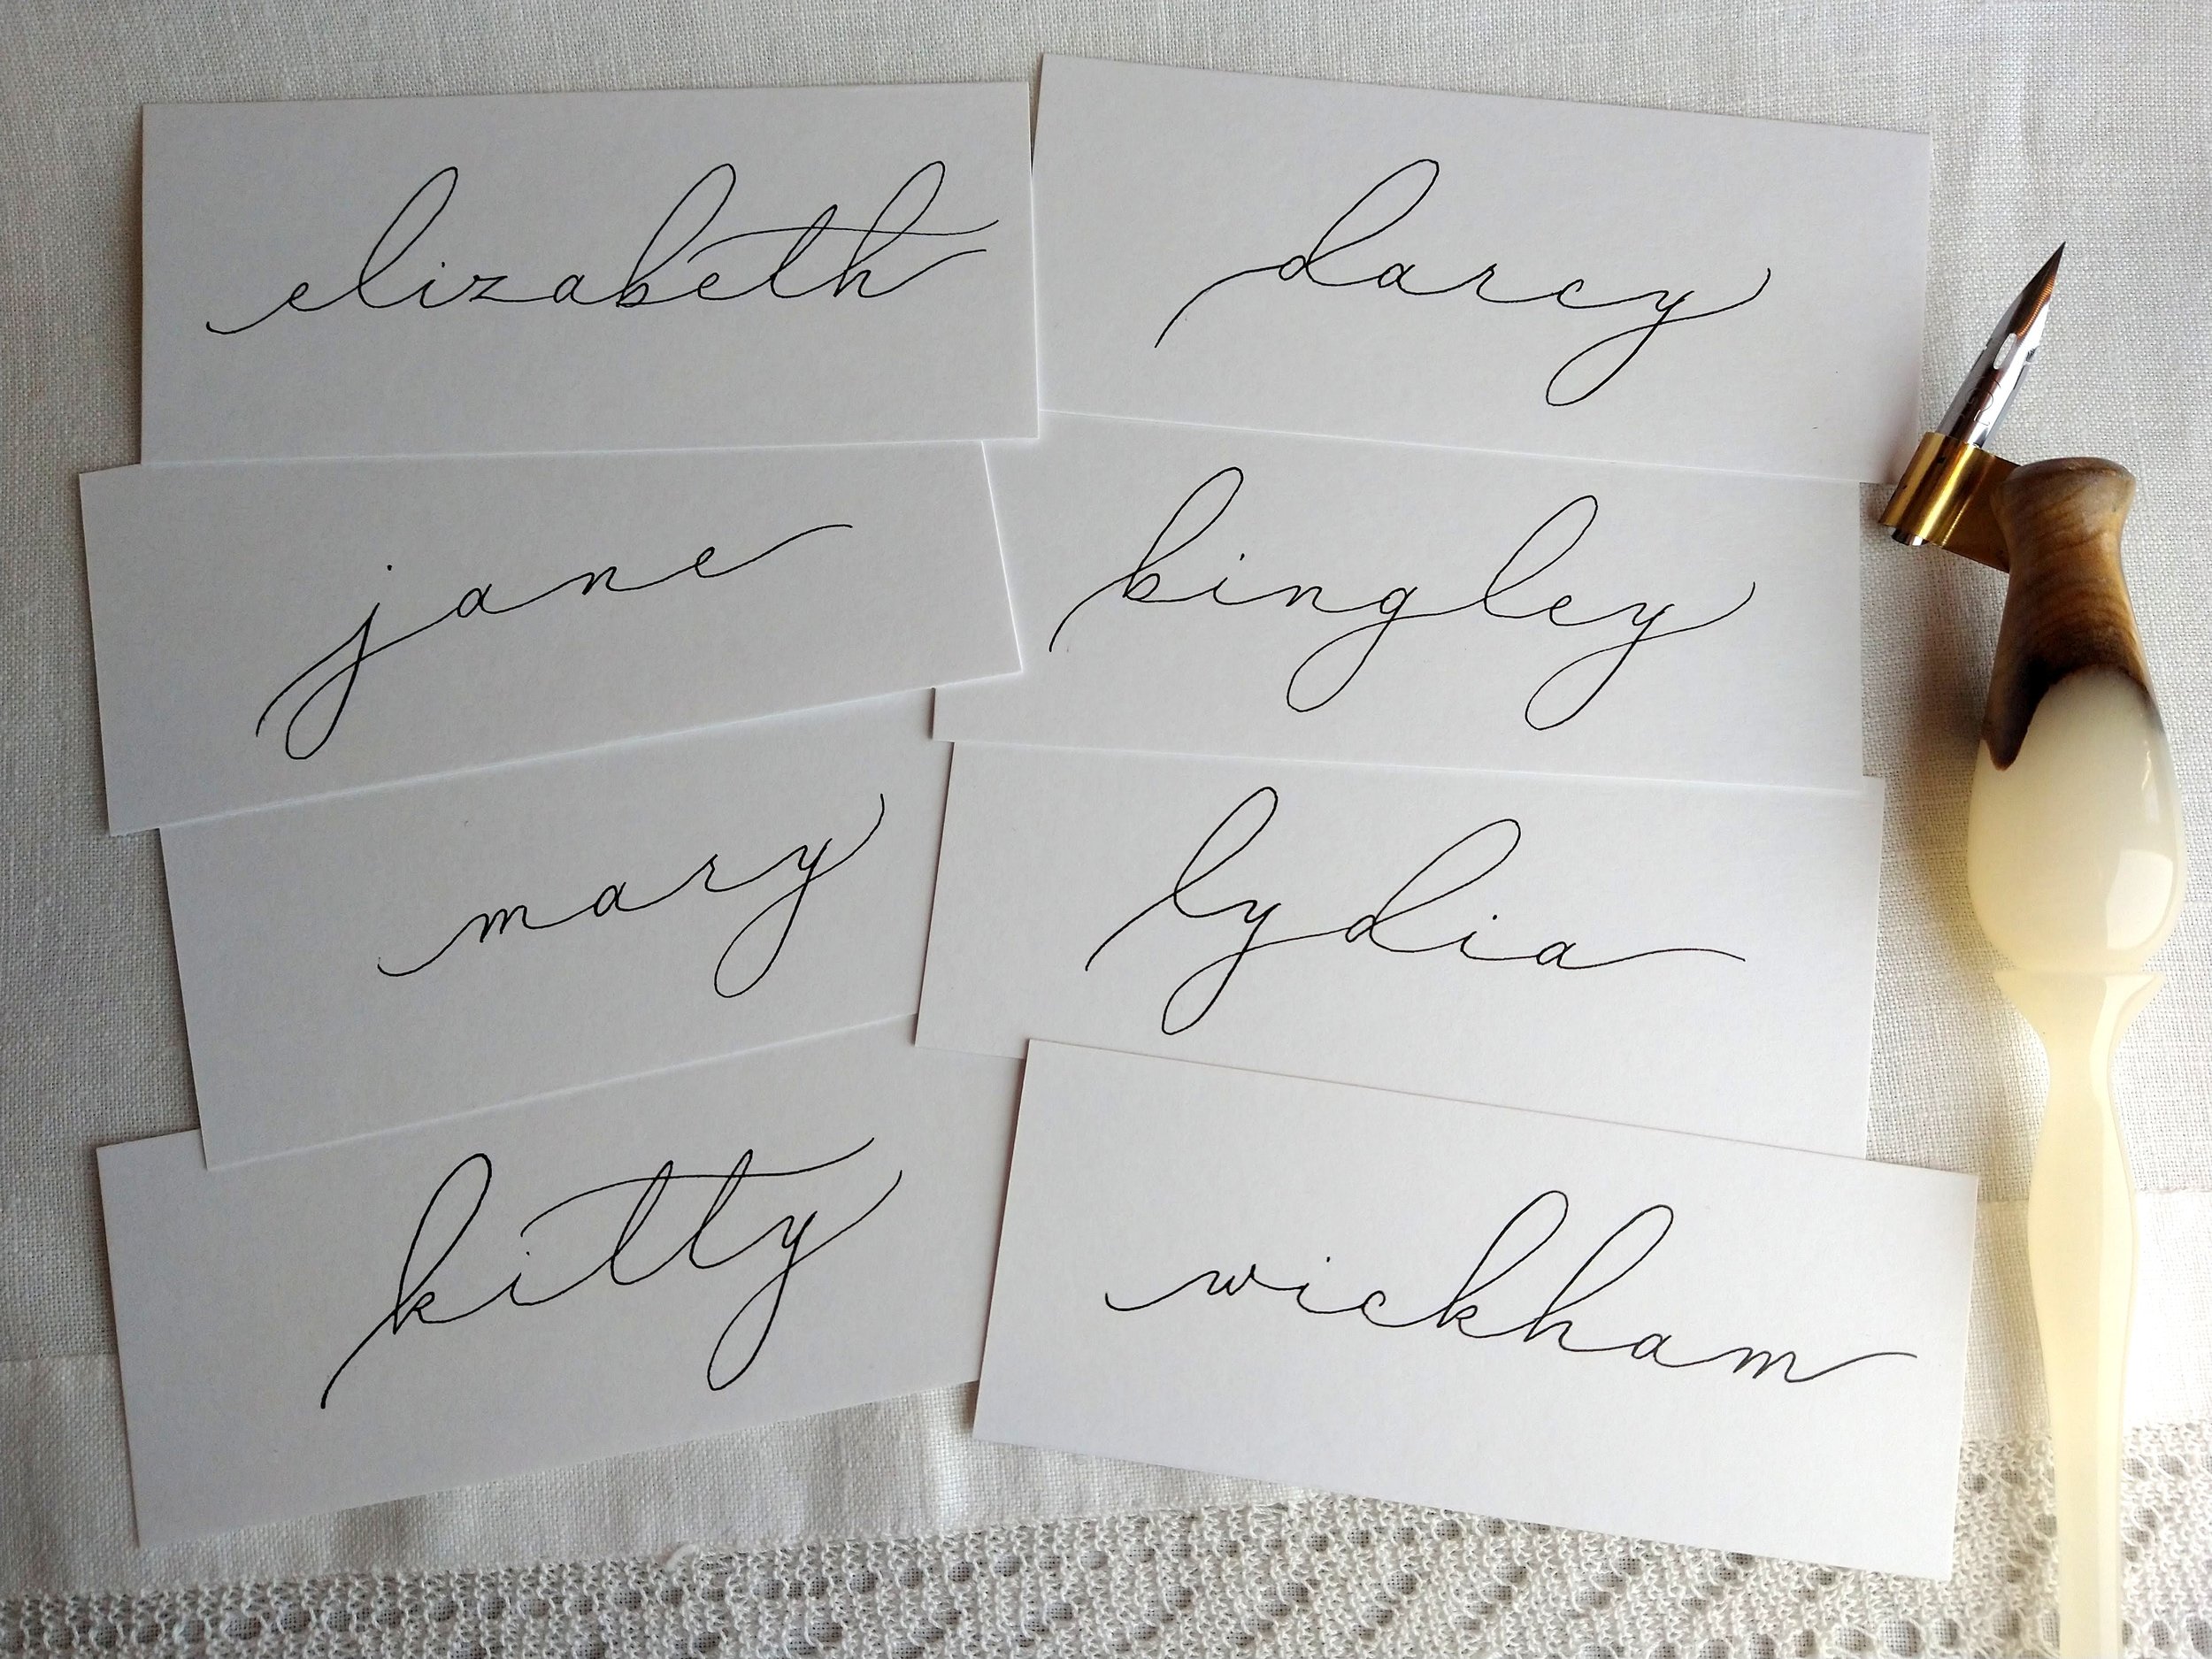 elizabeth
darcy
jane
bingley
mary
lydia
kitty
wickham